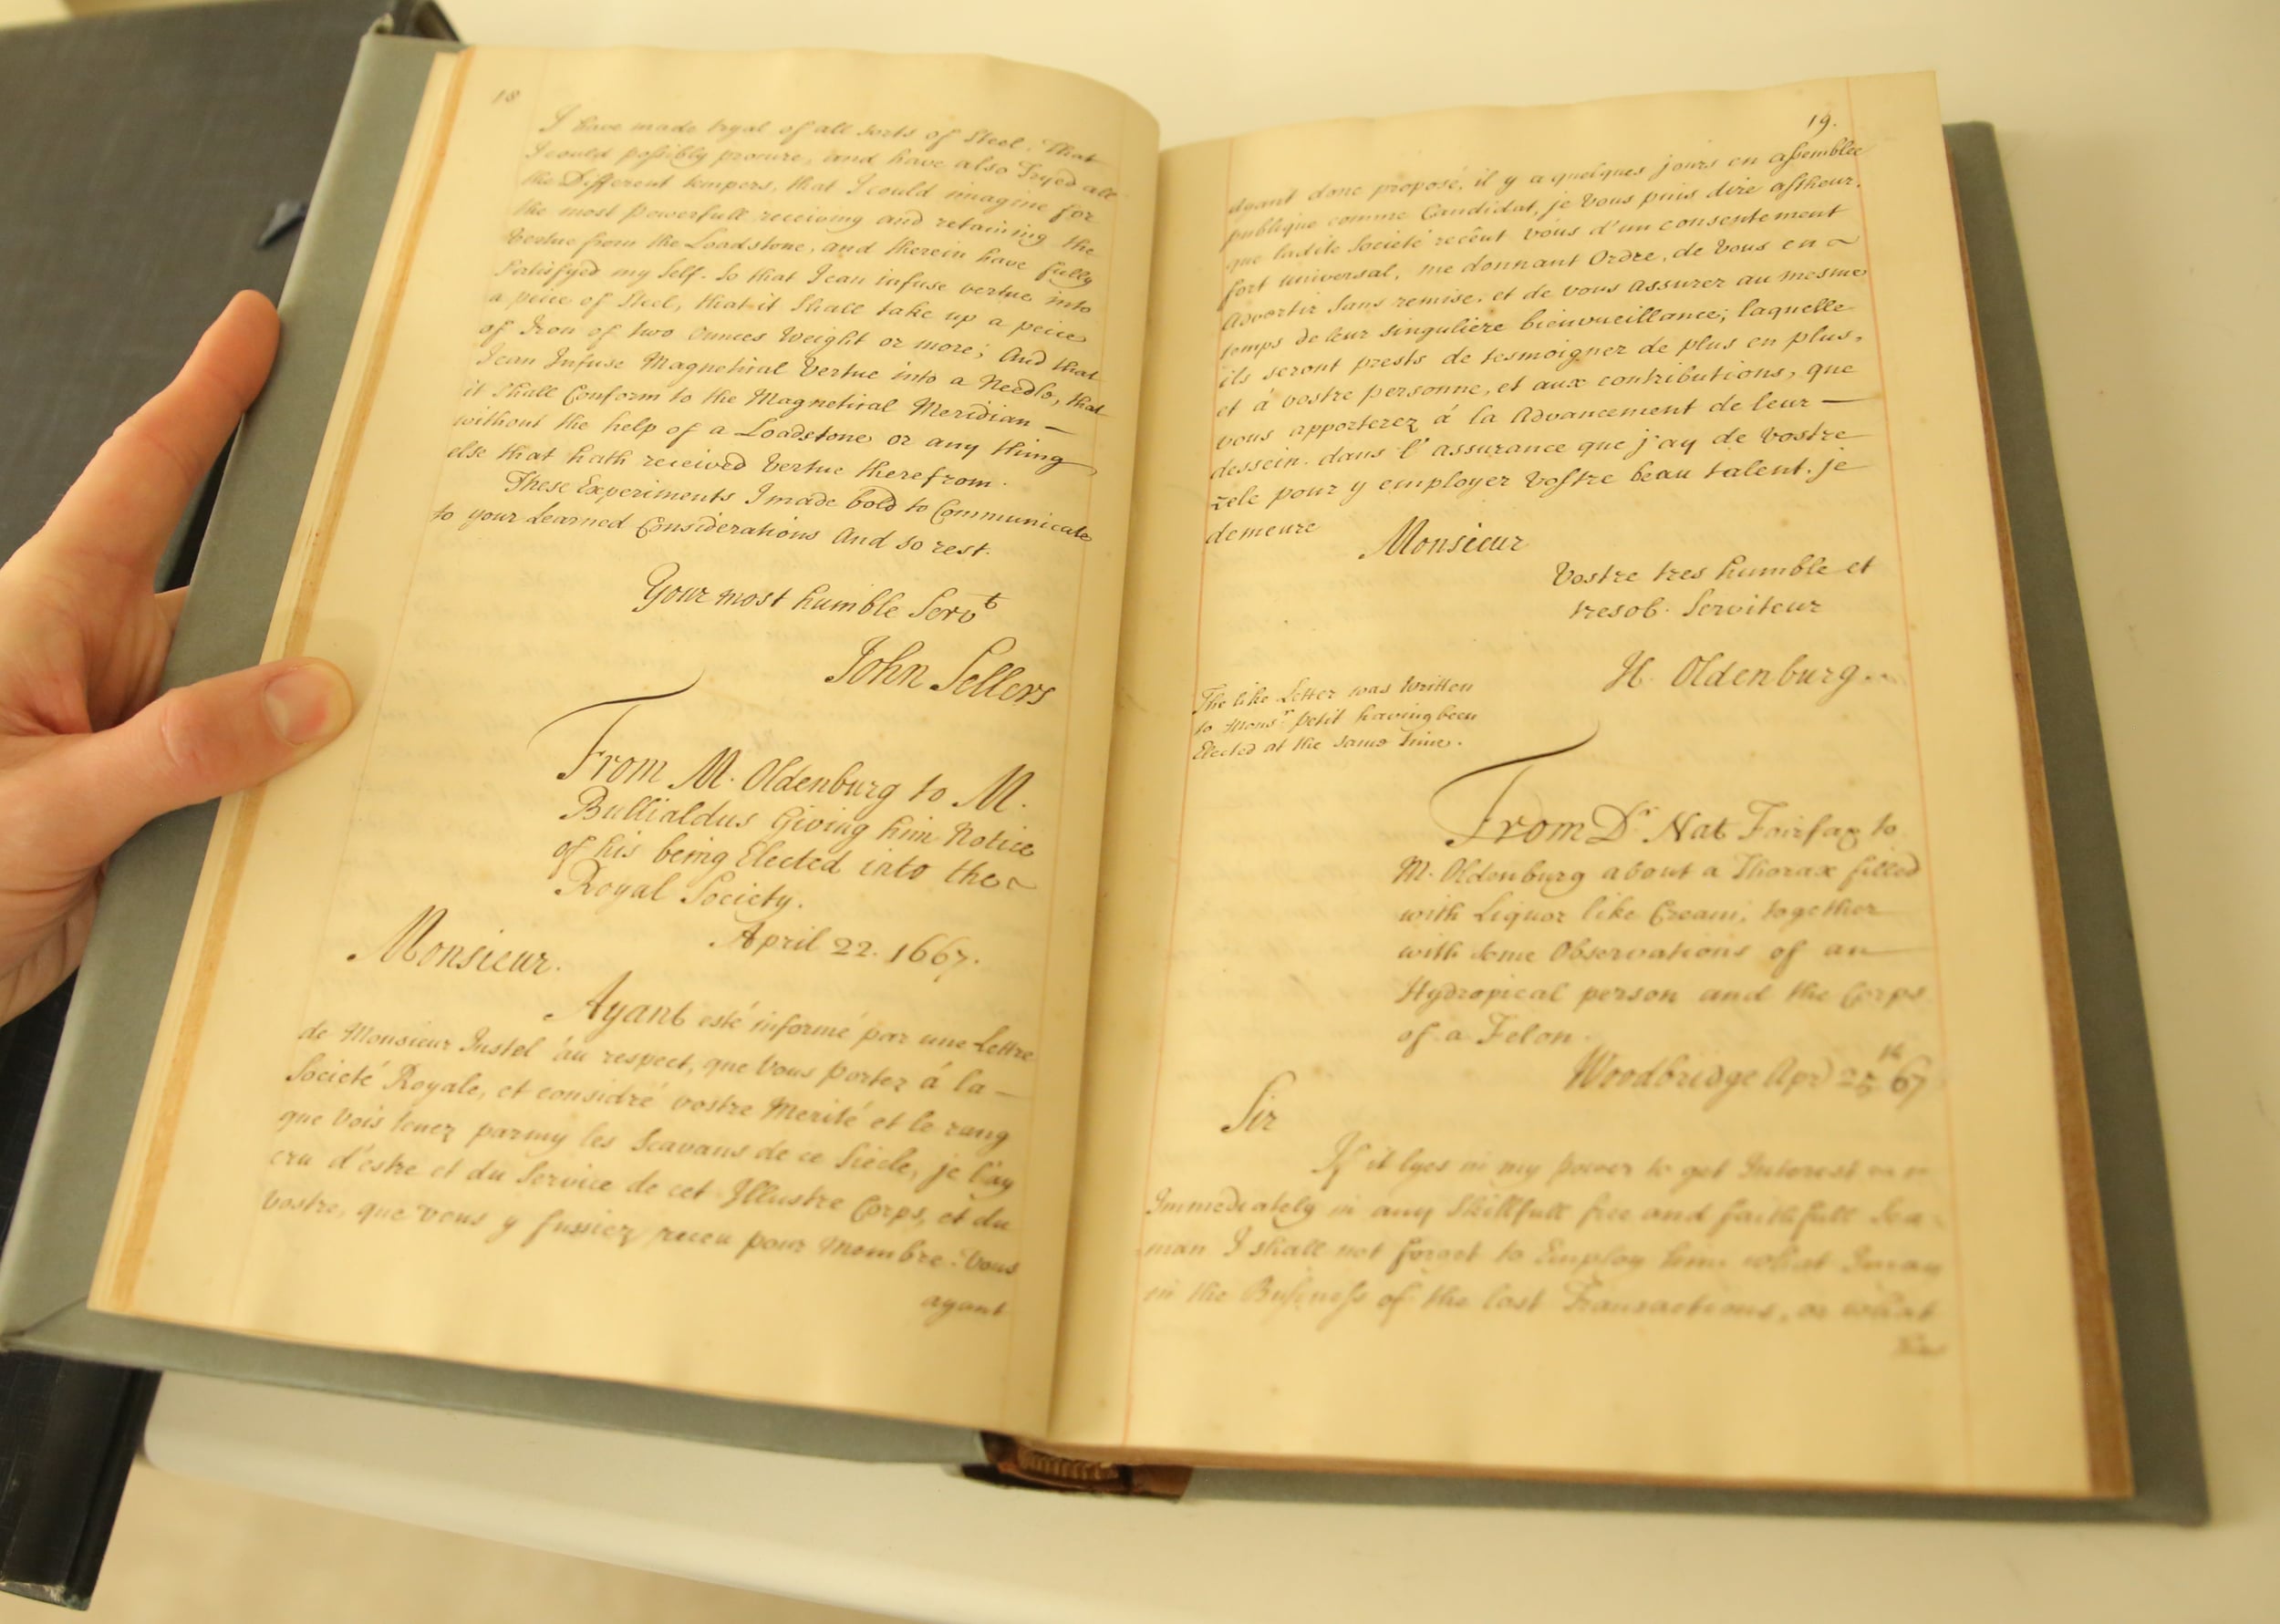 18
I have made tryal of all sorts of Steel, that
I could possibly procure, and have also Tryed all
the Different tempers, that I could imagine for
the most powerfull receiving and retaining the
Vertue from the Loadstone, and therein have fully
Satisfyed my Self. So that I can infuse vertue into
a peice of Steel, that it Shall take up a peice
of Iron of two Ounces Weight or more; And that
I can Infuse Magnetical Vertue into a Needle, that
it Shall Conform to the Magnetical Meridian —
without the help of a Loadstone or any thing
else that hath received Vertue therefrom.
These Experiments I made bold to Communicate
to your Learned Considerations And so rest.
Your most humble Servt
John Sellers
From M. Oldenburg to M.
Bullialdus Giving him Notice
of his being Elected into the
Royal Society.
April 22. 1667.
Monsieur.
Ayant esté informé par une Lettre
de Monsieur Justel au respect, que Vous portez á la —
Societé Royale, et considré vostre Merité et le rang
que Vois tenez parmy les Scavans de ce Siécle, je l'ay
cru d'estre et du Service de cet Illustre Corps, et du
Vostre, que vous y fussiez receu pour Membre. Vous
ayant
19.
Ayant donc proposé, il y a quelques jours en assemblee
publique comme Candidat, je Vous puis dire astheur,
que ladite Societé recêut Vous d'un consentement
fort universal, me donnant Ordre, de Vous en
Advertir Sans remise, et de vous Assurer au mesme
temps de leur singuliere bienvueillance; laquelle
ils seront prests de tesmoigner de plus en plus,
et á vostre personne, et aux contributions, que
vous apporterez á la Advancement de leur —
dessein. dans l'assurance que j'ay de Vostre
zele pour y employer Vostre beau talent. je
demeure
Monsieur
Vostre tres humble et
tresob. Serviteur
H. Oldenburg
The like Letter was Written
to Monsr Petit having been
Elected at the same time.
From Dr Nat Fairfax to
M. Oldenburg about a Thorax filled
with Liquor like Cream, together
with some Observations of an
Hydropical person and the Corps
of a Felon.
Woodbridge Apr 67
Sir
If it lyes in my power to get Interest
Immediately in any Skillfull free and faithfull Sea-
man I shall not forget to Employ him what I may
in the Business of the last Transactions, or what